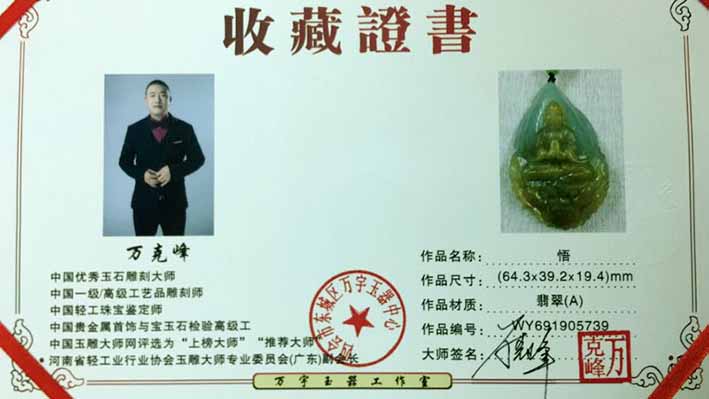 收藏證書
万克峰
中国优秀玉石雕刻大师
中国一级/高级工艺品雕刻师
中国轻工珠宝鉴定师
中国贵金属首饰与宝玉石检验高级工
中国玉雕大师网评选为“上榜大师”“推荐大师”
河南省轻工业行业协会玉雕大师专业委员会(广东)副会长
会市东城区万宇玉器中心
作品名称: 悟
作品尺寸: (64.3x39.2x19.4)mm
作品材质: 翡翠(A)
作品编号: WY691905739
大师签名:
万克峰
万宇玉器工作室